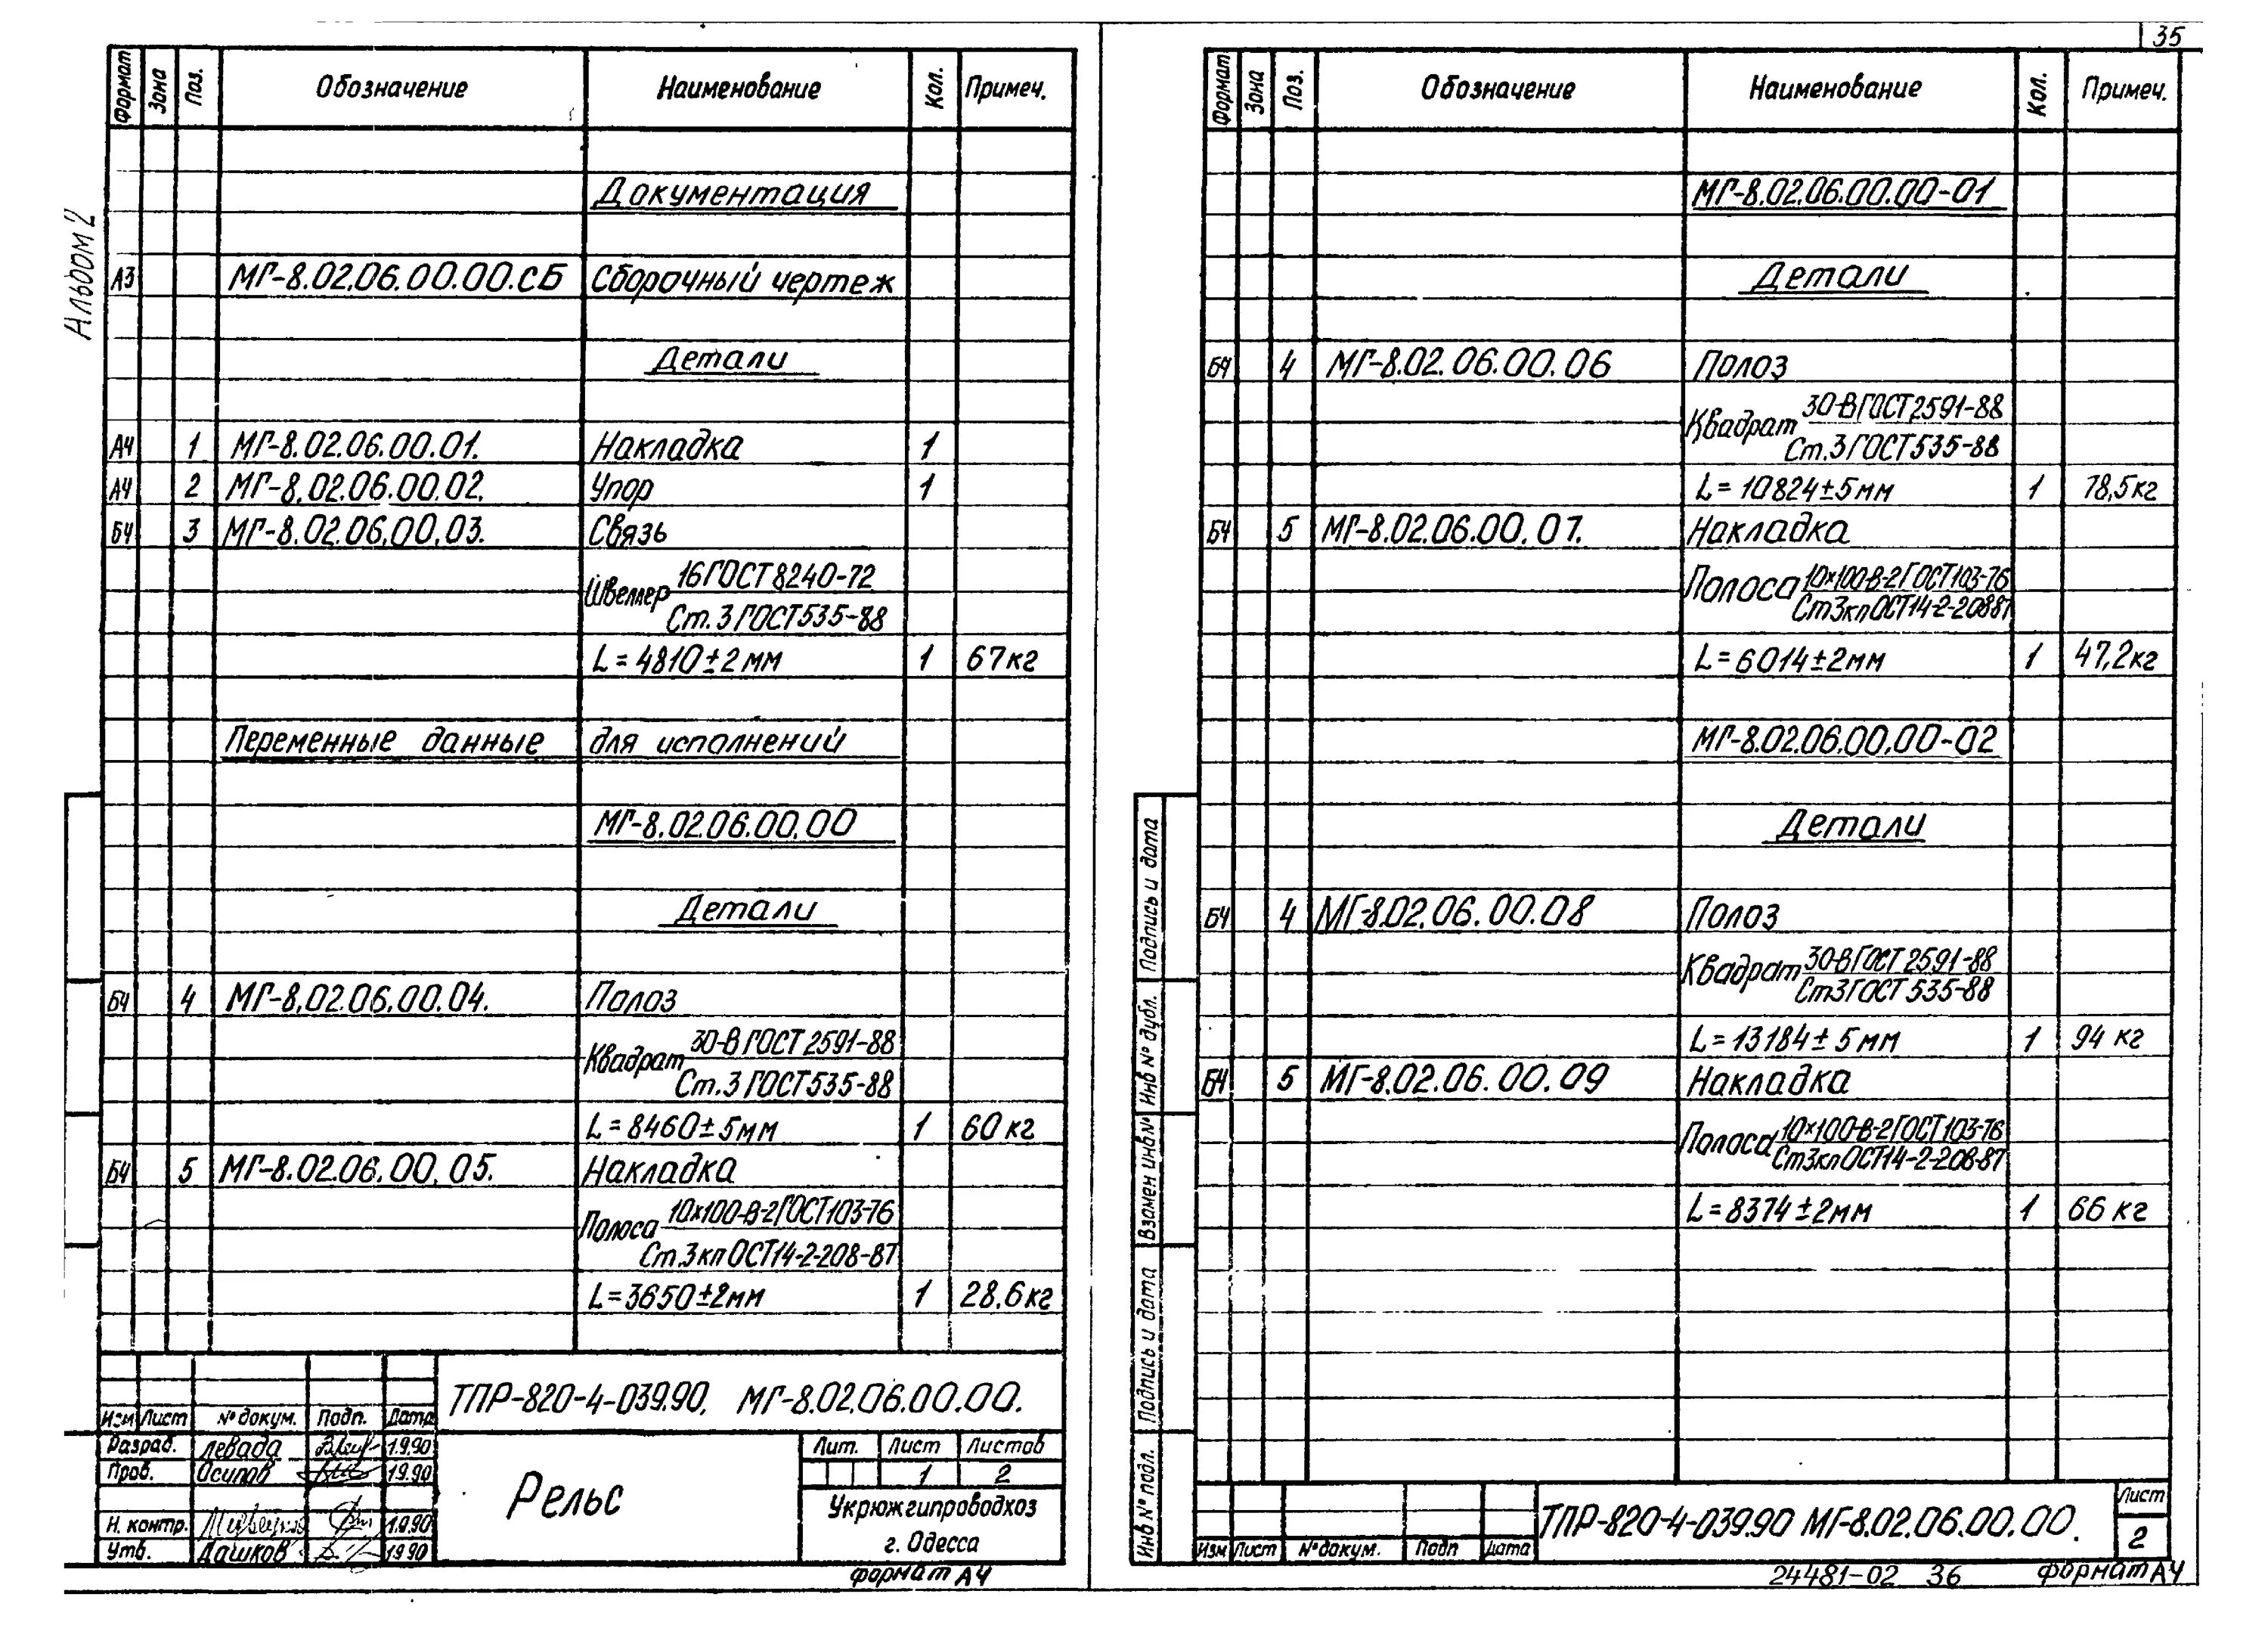 Альбом 2
Формат Зона Поз. Обозначение Наименование Кол. Примеч.
Документация
А3 МГ-8.02.06.00.00.СБ Сборочный чертеж
Детали
А4 1 МГ-8.02.06.00.01. Накладка 1
А4 2 МГ-8.02.06.00.02. Упор 1
БЧ 3 МГ-8.02.06.00.03. Связь
Швеллер 16 ГОСТ 8240-72
Ст. 3 ГОСТ 535-88
L = 4810±2 мм 1 67 кг
Переменные данные для исполнений
МГ-8.02.06.00.00
Детали
БЧ 4 МГ-8.02.06.00.04. Полоз
Квадрат 30-В ГОСТ 2591-88
Ст. 3 ГОСТ 535-88
L = 8460±5 мм 1 60 кг
БЧ 5 МГ-8.02.06.00.05. Накладка
Полоса 10×100-В-2 ГОСТ 103-76
Ст. 3 кп ОСТ 14-2-208-87
L = 3650±2 мм 1 28,6 кг
ТПР-820-4-039.90. МГ-8.02.06.00.00.
Изм Лист № докум. Подп. Дата
Разраб. Левада 1.9.90
Пров. Осипов 19.90
Н. контр. 1.9.90
Утв. Дашков 19.90
Рельс
Лит. Лист Листов
1 2
Укрюжгипроводхоз
г. Одесса
формат А4
35
Формат Зона Поз. Обозначение Наименование Кол. Примеч.
МГ-8.02.06.00.00-01
Детали
БЧ 4 МГ-8.02.06.00.06 Полоз
Квадрат 30-В ГОСТ 2591-88
Ст. 3 ГОСТ 535-88
L = 10824±5 мм 1 78,5 кг
БЧ 5 МГ-8.02.06.00.07. Накладка
Полоса 10×100-В-2 ГОСТ 103-76
Ст 3 кп ОСТ 14-2-20887
L = 6014±2 мм 1 47,2 кг
МГ-8.02.06.00.00-02
Детали
БЧ 4 МГ-8.02.06.00.08 Полоз
Квадрат 30-В ГОСТ 2591-88
Ст 3 ГОСТ 535-88
L = 13184±5 мм 1 94 кг
БЧ 5 МГ-8.02.06.00.09 Накладка
Полоса 10×100-В-2 ГОСТ 103-76
Ст 3 кп ОСТ 14-2-208-87
L = 8374±2 мм 1 66 кг
Инв № подл. Подпись и дата Взамен инв № Инв № дубл. Подпись и дата
Изм Лист № докум. Подп Дата
ТПР-820-4-039.90 МГ-8.02.06.00.00.
Лист
2
24481-02 36 формат А4